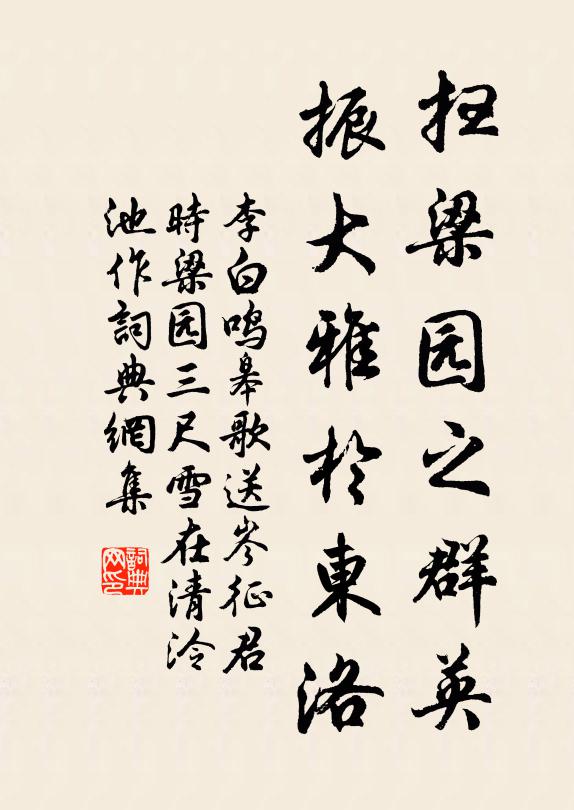 扫梁园之群英
振大雅於東洛
李白鸣皋歌送岑征君
時梁园三尺雪在清泠
池作詞典網集
詞典网印